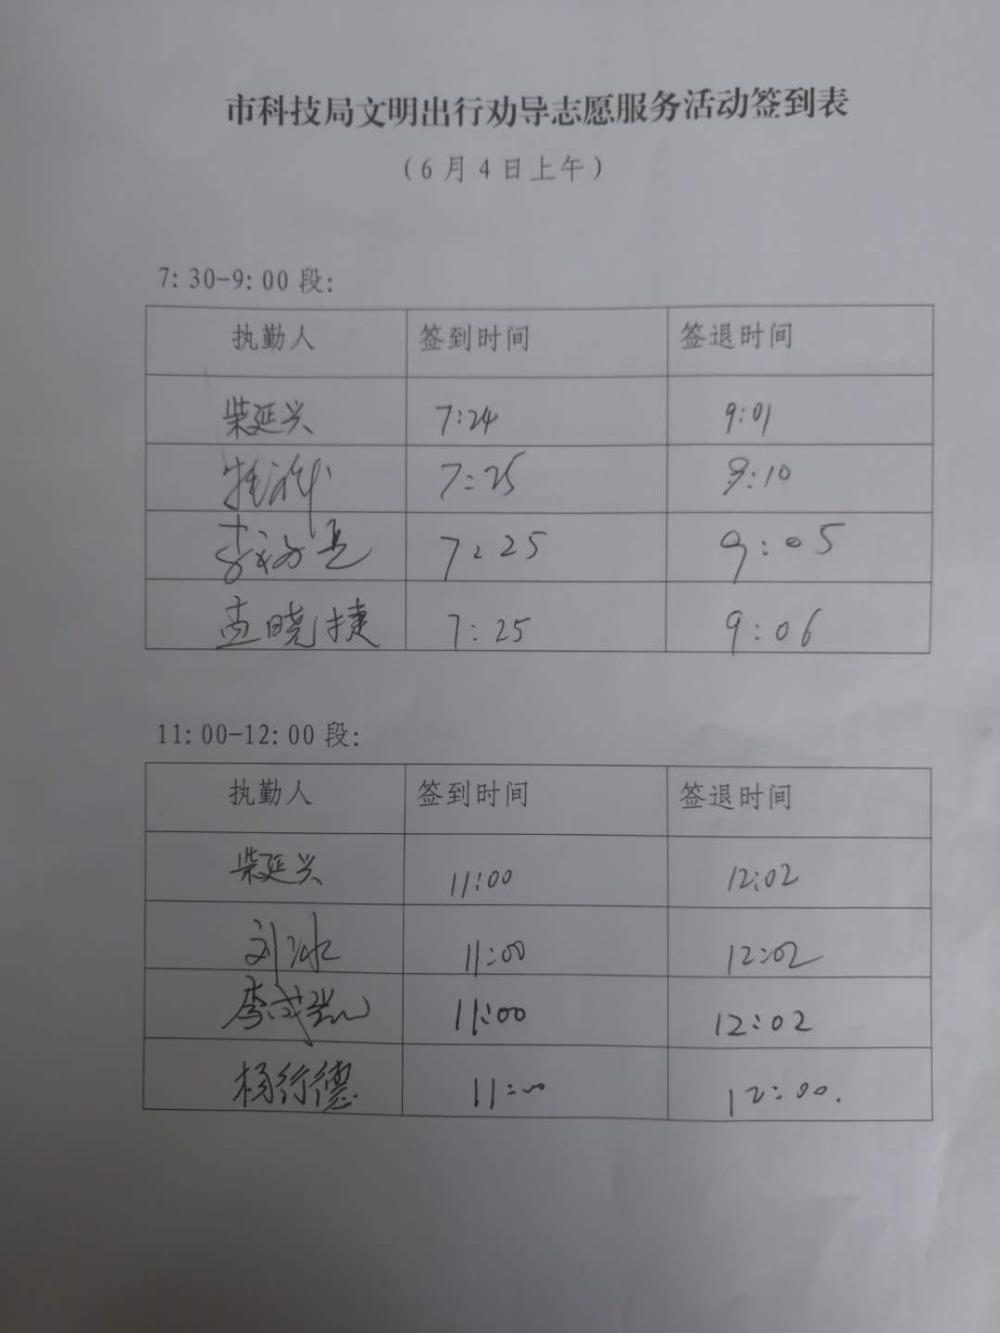 市科技局文明出行劝导志愿服务活动签到表
(6月4日上午)
7:30-9:00段:
执勤人 签到时间 签退时间
柴延兴 7:24 9:01
7:25 9:10
7:25 9:05
孟晓捷 7:25 9:06
11:00-12:00段:
执勤人 签到时间 签退时间
柴延兴 11:00 12:02
刘冰 11:00 12:02
李成 11:00 12:02
杨行德 11:00 12:00.